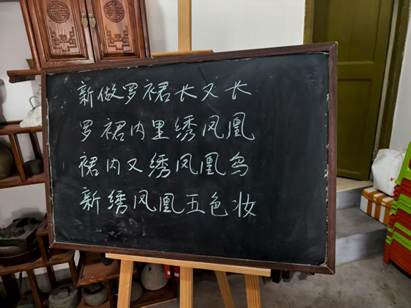 新做罗裙长又长
罗裙内里绣凤凰
裙内又绣凤凰鸟
新绣凤凰五色妆